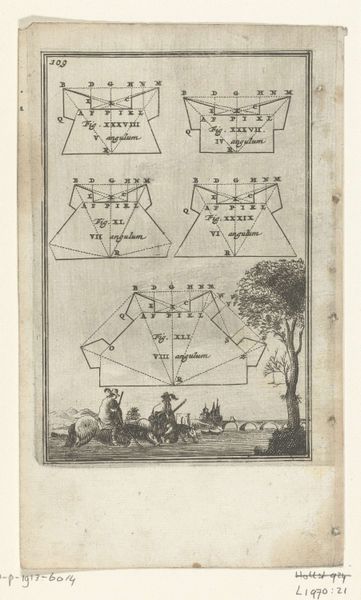 109
B D G H N M
E C
A F P I K L
Q
Fig. XXXVIII
V angulum
R
B D G H N M
E C
A F P I K L
Q
Fig. XXXVII.
IV angulum
R
B D G H N M
E C
A F P I K L
Fig. XL
VII angulum
R
B D G H N M
E C
A F P I K L
Fig. XXXIX
VI angulum
R
B D G H N M
E C
Q A F P I K L
Fig. XLI
O VIII angulum S
R
-P-1913-6014
Hollst 924
L1970:21